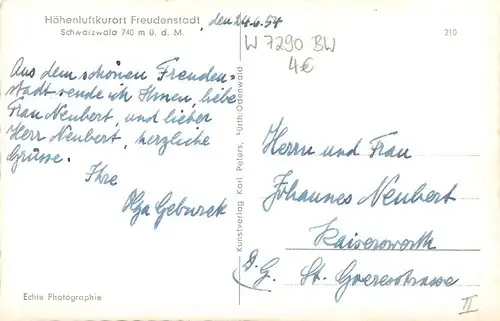 Höhenluftkurort Freudenstadt
Schwarzwald 740 m ü. d. M.
, den 24.6.54
W 7290 BW
4€
210
Aus dem schönen Freuden=
stadt sende ich Ihnen, liebe
Frau Neubert, und lieber
Herr Neubert, herzliche
Grüsse.
Ihre
Olga Geburek
Kunstverlag Karl Peters, Fürth/Odenwald
Herrn und Frau
Johannes Neubert
Kaiserswerth
St. Goeresstrasse
II
Echte Photographie